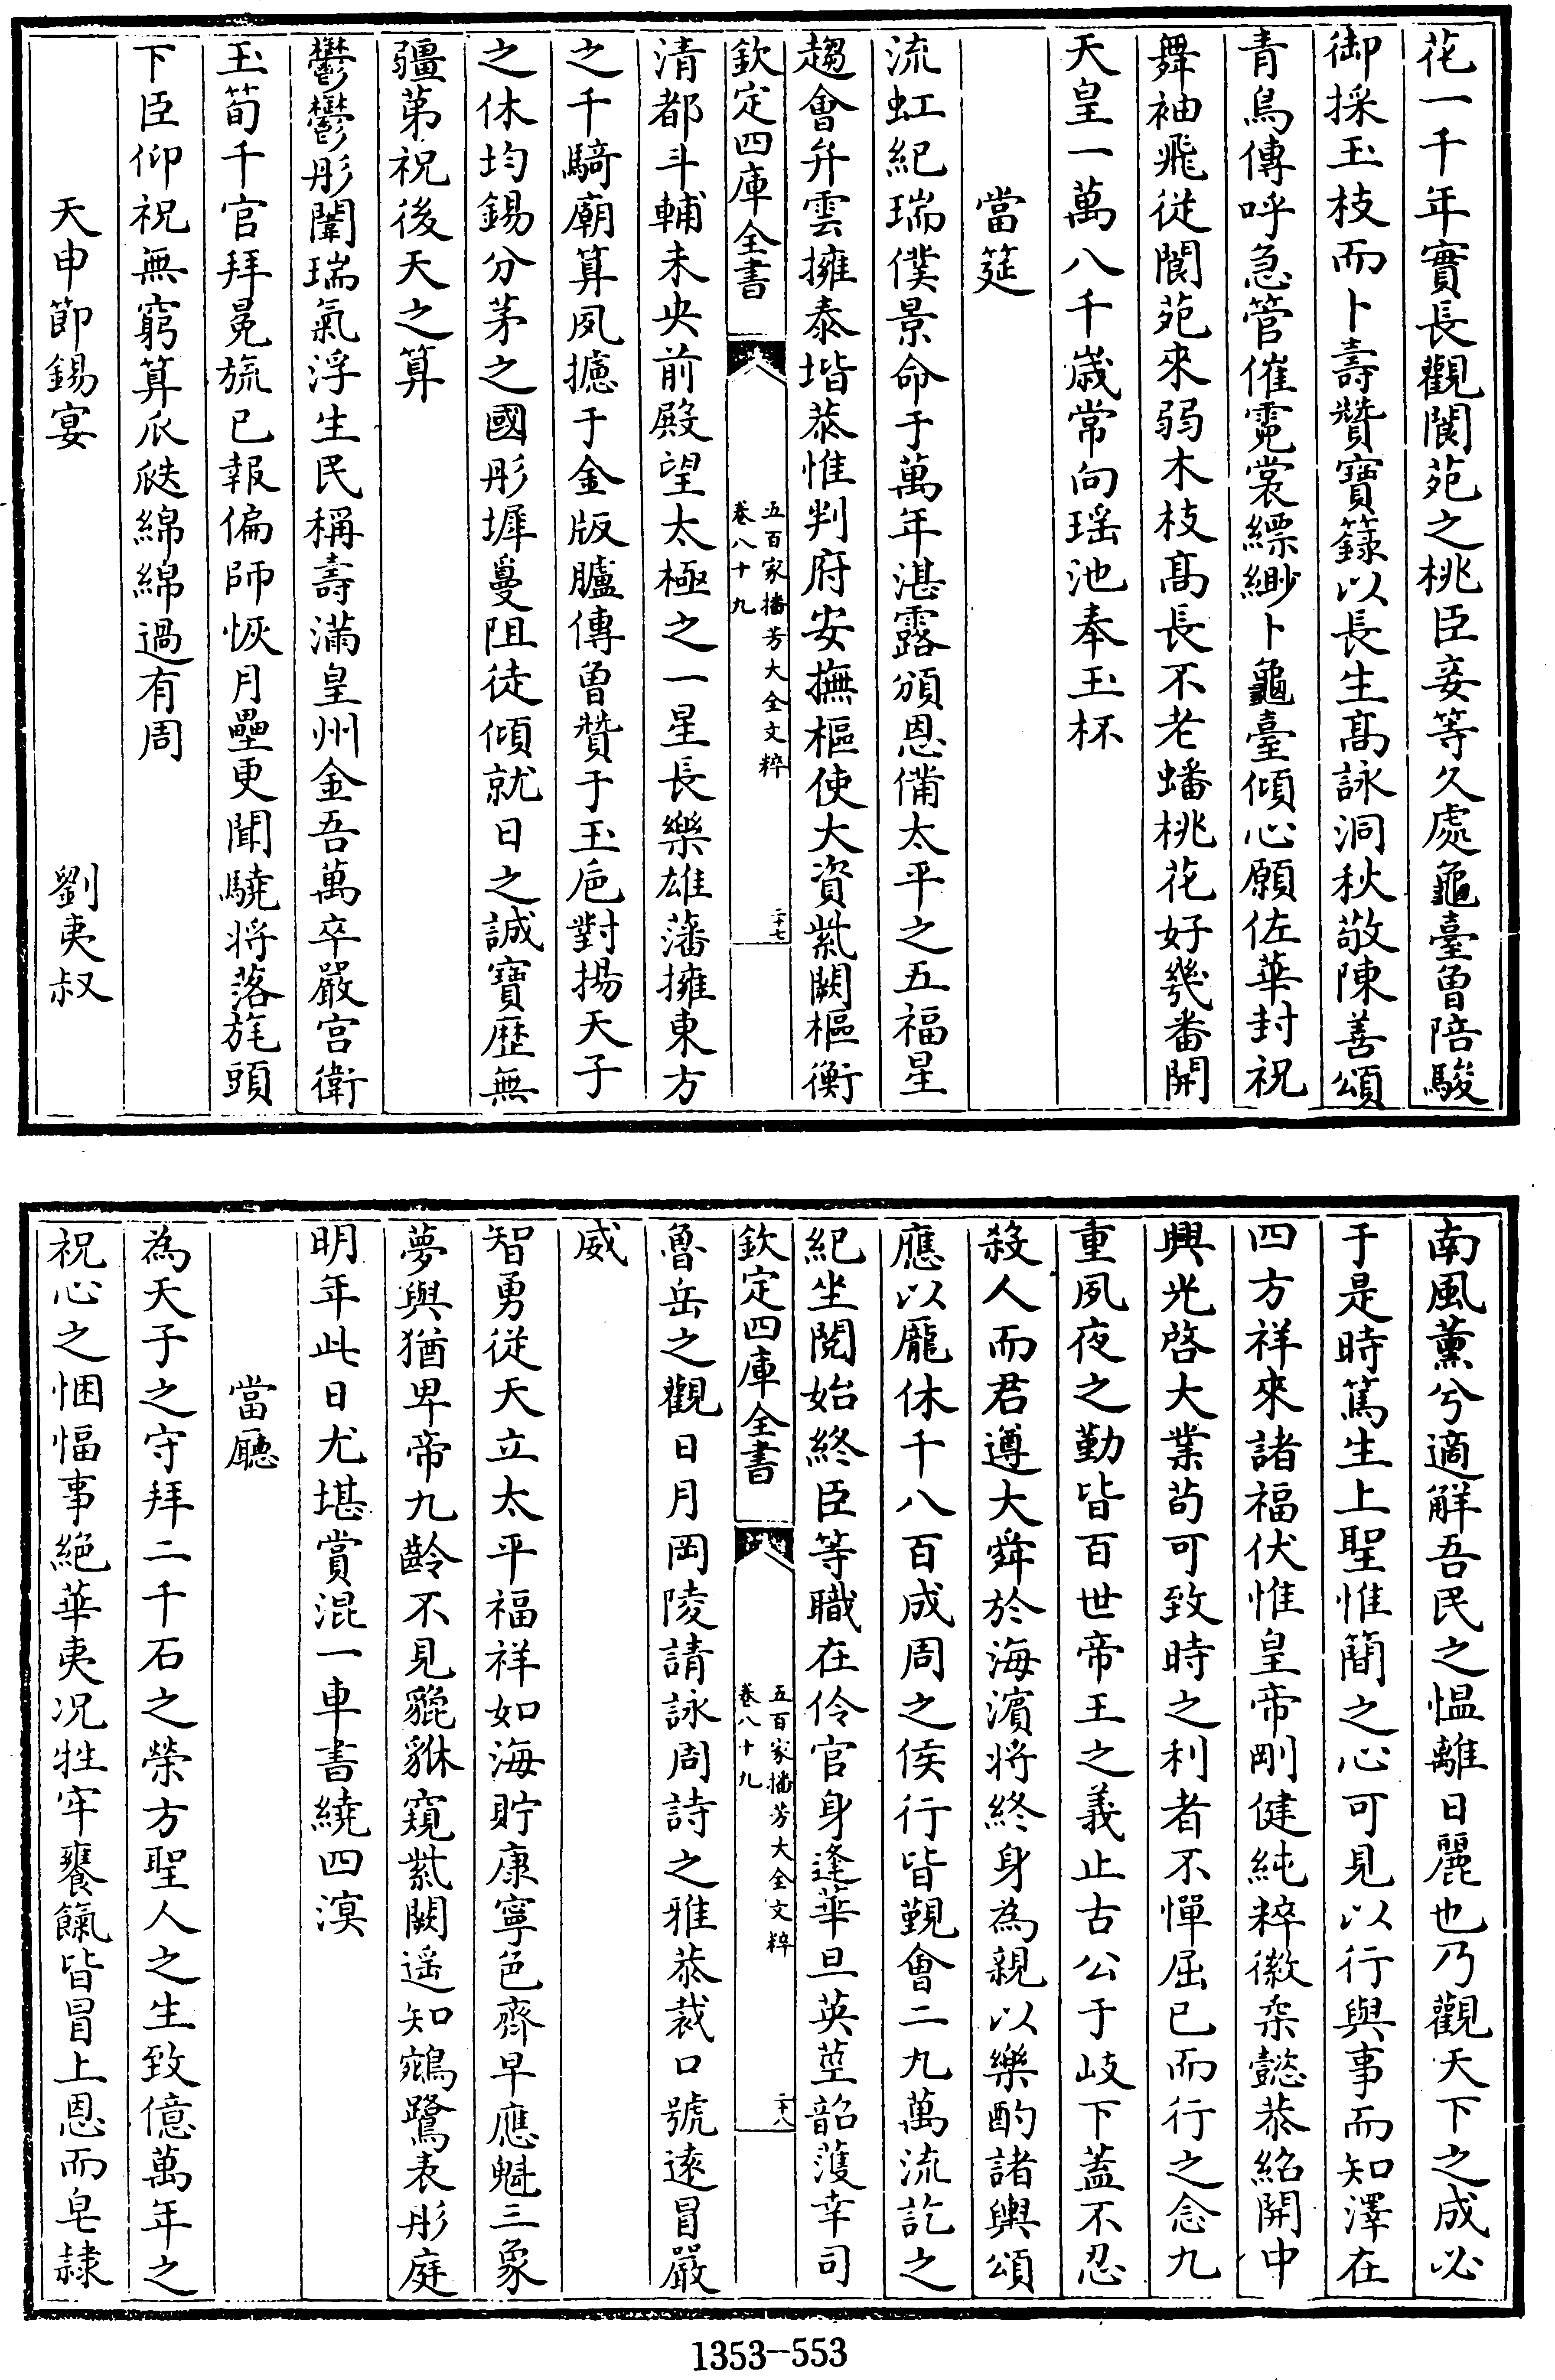 花一千年實長觀閬苑之桃臣妾等久處龜臺曽陪駿
御採玉枝而卜壽贊寶籙以長生髙詠洞秋敬陳善頌
青鳥傳呼急管催霓裳縹緲卜龜臺傾心願佐華封祝
舞袖飛從閬苑來弱木枝髙長不老蟠桃花好幾番開
天皇一萬八千歳常向瑶池奉玉杯
當筵
流虹紀瑞僕景命于萬年湛露頒恩備太平之五福星
趨會弁雲擁泰堦恭惟判府安撫樞使大資紫闕樞衡
欽定四庫全書
五百家播芳大全文粹
卷八十九
二十七
清都斗輔未央前殿望太極之一星長樂雄藩擁東方
之千騎廟算夙攄于金版臚傳曽贊于玉巵對揚天子
之休均錫分茅之國彤墀㬅阻徒傾就日之誠寶歴無
疆苐祝後天之算
鬱鬱彤闈瑞氣浮生民稱壽滿皇州金吾萬卒嚴宫衛
玉筍千官拜冕旒已報偏師恢月壘更聞驍将落旄頭
下臣仰祝無窮算瓜瓞綿綿過有周
天申節錫宴
劉夷叔
南風薰兮適解吾民之愠離日麗也乃觀天下之成必
于是時篤生上聖惟簡之心可見以行與事而知澤在
四方祥來諸福伏惟皇帝剛健純粹徽柔懿恭紹開中
興光啓大業苟可致時之利者不憚屈已而行之念九
重夙夜之勤皆百世帝王之義止古公于岐下蓋不忍
殺人而君遵大舜於海濵将終身為親以樂酌諸輿頌
應以厖休千八百成周之侯行皆覲會二九萬流訖之
紀坐閱始終臣等職在伶官身逢華旦英莖韶濩幸司
欽定四庫全書
五百家播芳大全文粹
卷八十九
二十八
魯岳之觀日月岡陵請詠周詩之雅恭裁口號逺冒嚴
威
智勇從天立太平福祥如海貯康寧色齊早應魁三象
夢與猶卑帝九齡不見貔貅窺紫闕遥知鵷鷺表彤庭
明年此日尤堪賞混一車書繞四溟
當廳
為天子之守拜二千石之榮方聖人之生致億萬年之
祝心之悃愊事絶華夷况牲牢饔餼皆冒上恩而皂隷